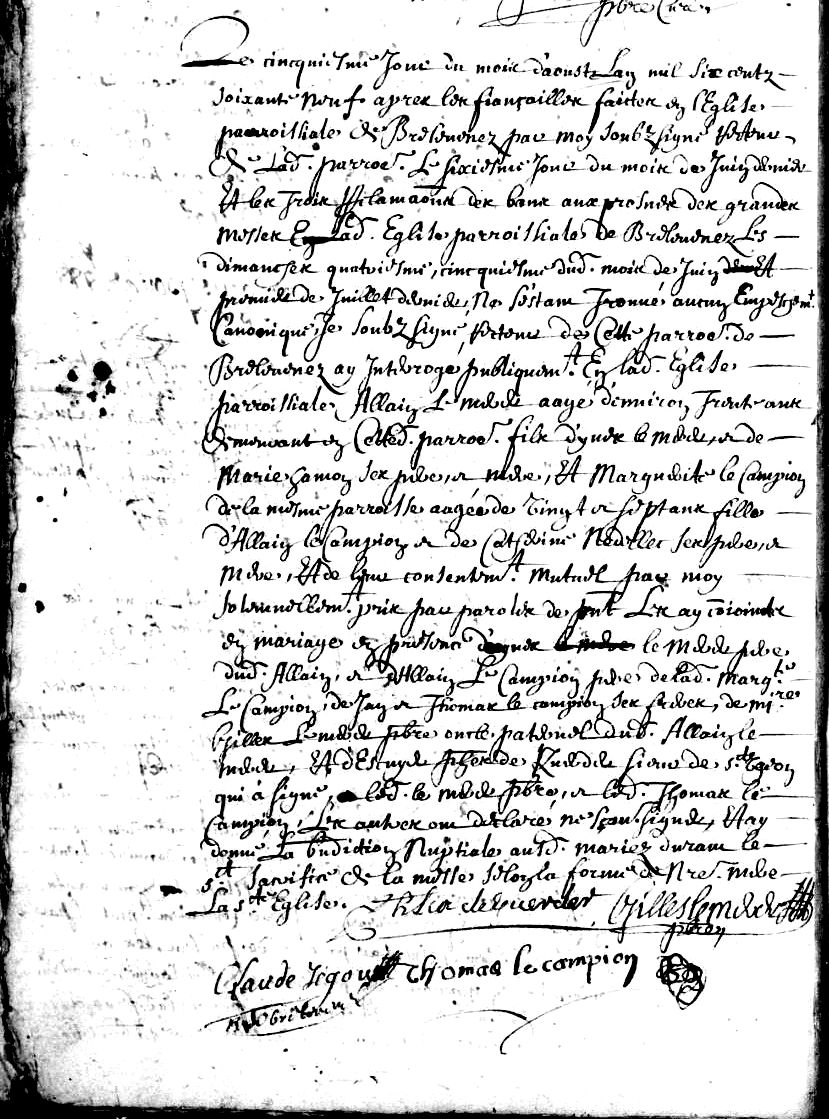 pbre Curé
Le cincquiesme Jour du mois d'aoust Lan mil six centz
soixante neuf apres les fiançailles faictes en l'Eglise
parroissiale de Brelevenez par moy soubzsigné Recteur
de Lad. parroe. Le sixiesme Jour du mois de Juin dernier
Et les Trois proclamaons des bans aux prosnes des grandes
Messes En Lad. Eglise parroissiale de Brelevenez Les
dimanches quatriesme, cincquiesme dud. mois de Juin Et
premier de Juillet dernier, Ne s'estant Trouvé aucun Empeschemt.
Canonique, Je soubzsigné, Recteur de Cette parroe. de
Brelevenez ay Interrogé publiquemt. En lad. Eglise
parroissiale Allain Le Merer aagé d'environ Trente ans
demeurant en Cetted. parroe. fils d'yves le Merer, et de
Marie hamon ses pere, et mere, Et Marguerite le Campion
de la mesme parroisse aagée de vingt et sept ans fille
d'Allain le Campion et de Catherine Nedellec ses pere, et
Mere, Et de leur consentemt. Mutuel par moy
solemnellemt. pris par paroles de pnt Les ay coioincts
en mariage en presence d'yves le Merer pere
dud. Allain, et d'Allain Le Campion pere de lad. Margte.
Le Campion, de Jan et Thomas le campion ses freres, de Mre.
Gilles Le merer pbre oncle paternel dud. Allain le
merer, Et d'Escuyer
qui a signé led. le Merer pbre, et led. Thomas le
Campion, Les autres ont declaré, ne sçavoir signer, Et ay
donné La benediction Nuptiale ausd. mariez durant le
st. sacrifice de la messe selon la forme de Nre. mere
La ste. Eglise. Gilles le merer
pbre
Claude Thomas le campion